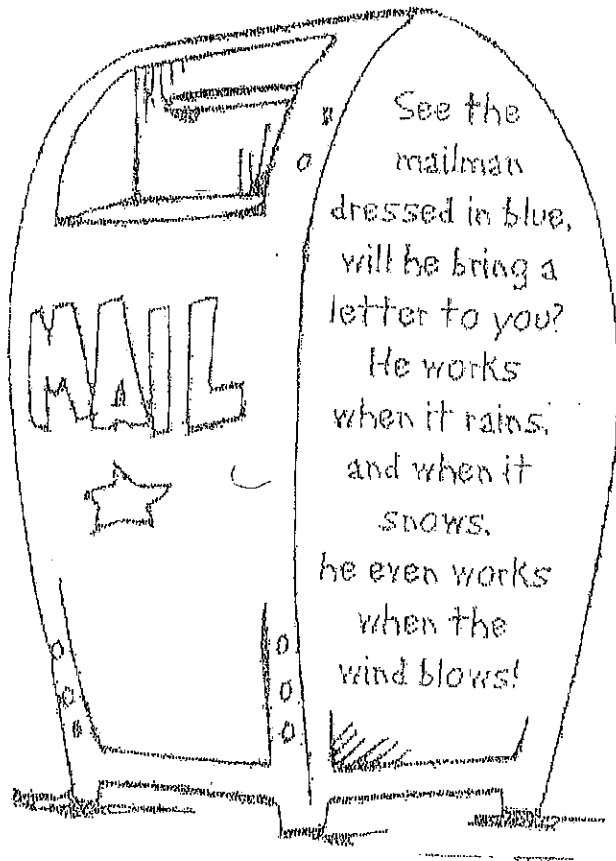 MAIL
See the
mailman
dressed in blue,
will he bring a
letter to you?
He works
when it rains,
and when it
snows,
he even works
when the
wind blows!